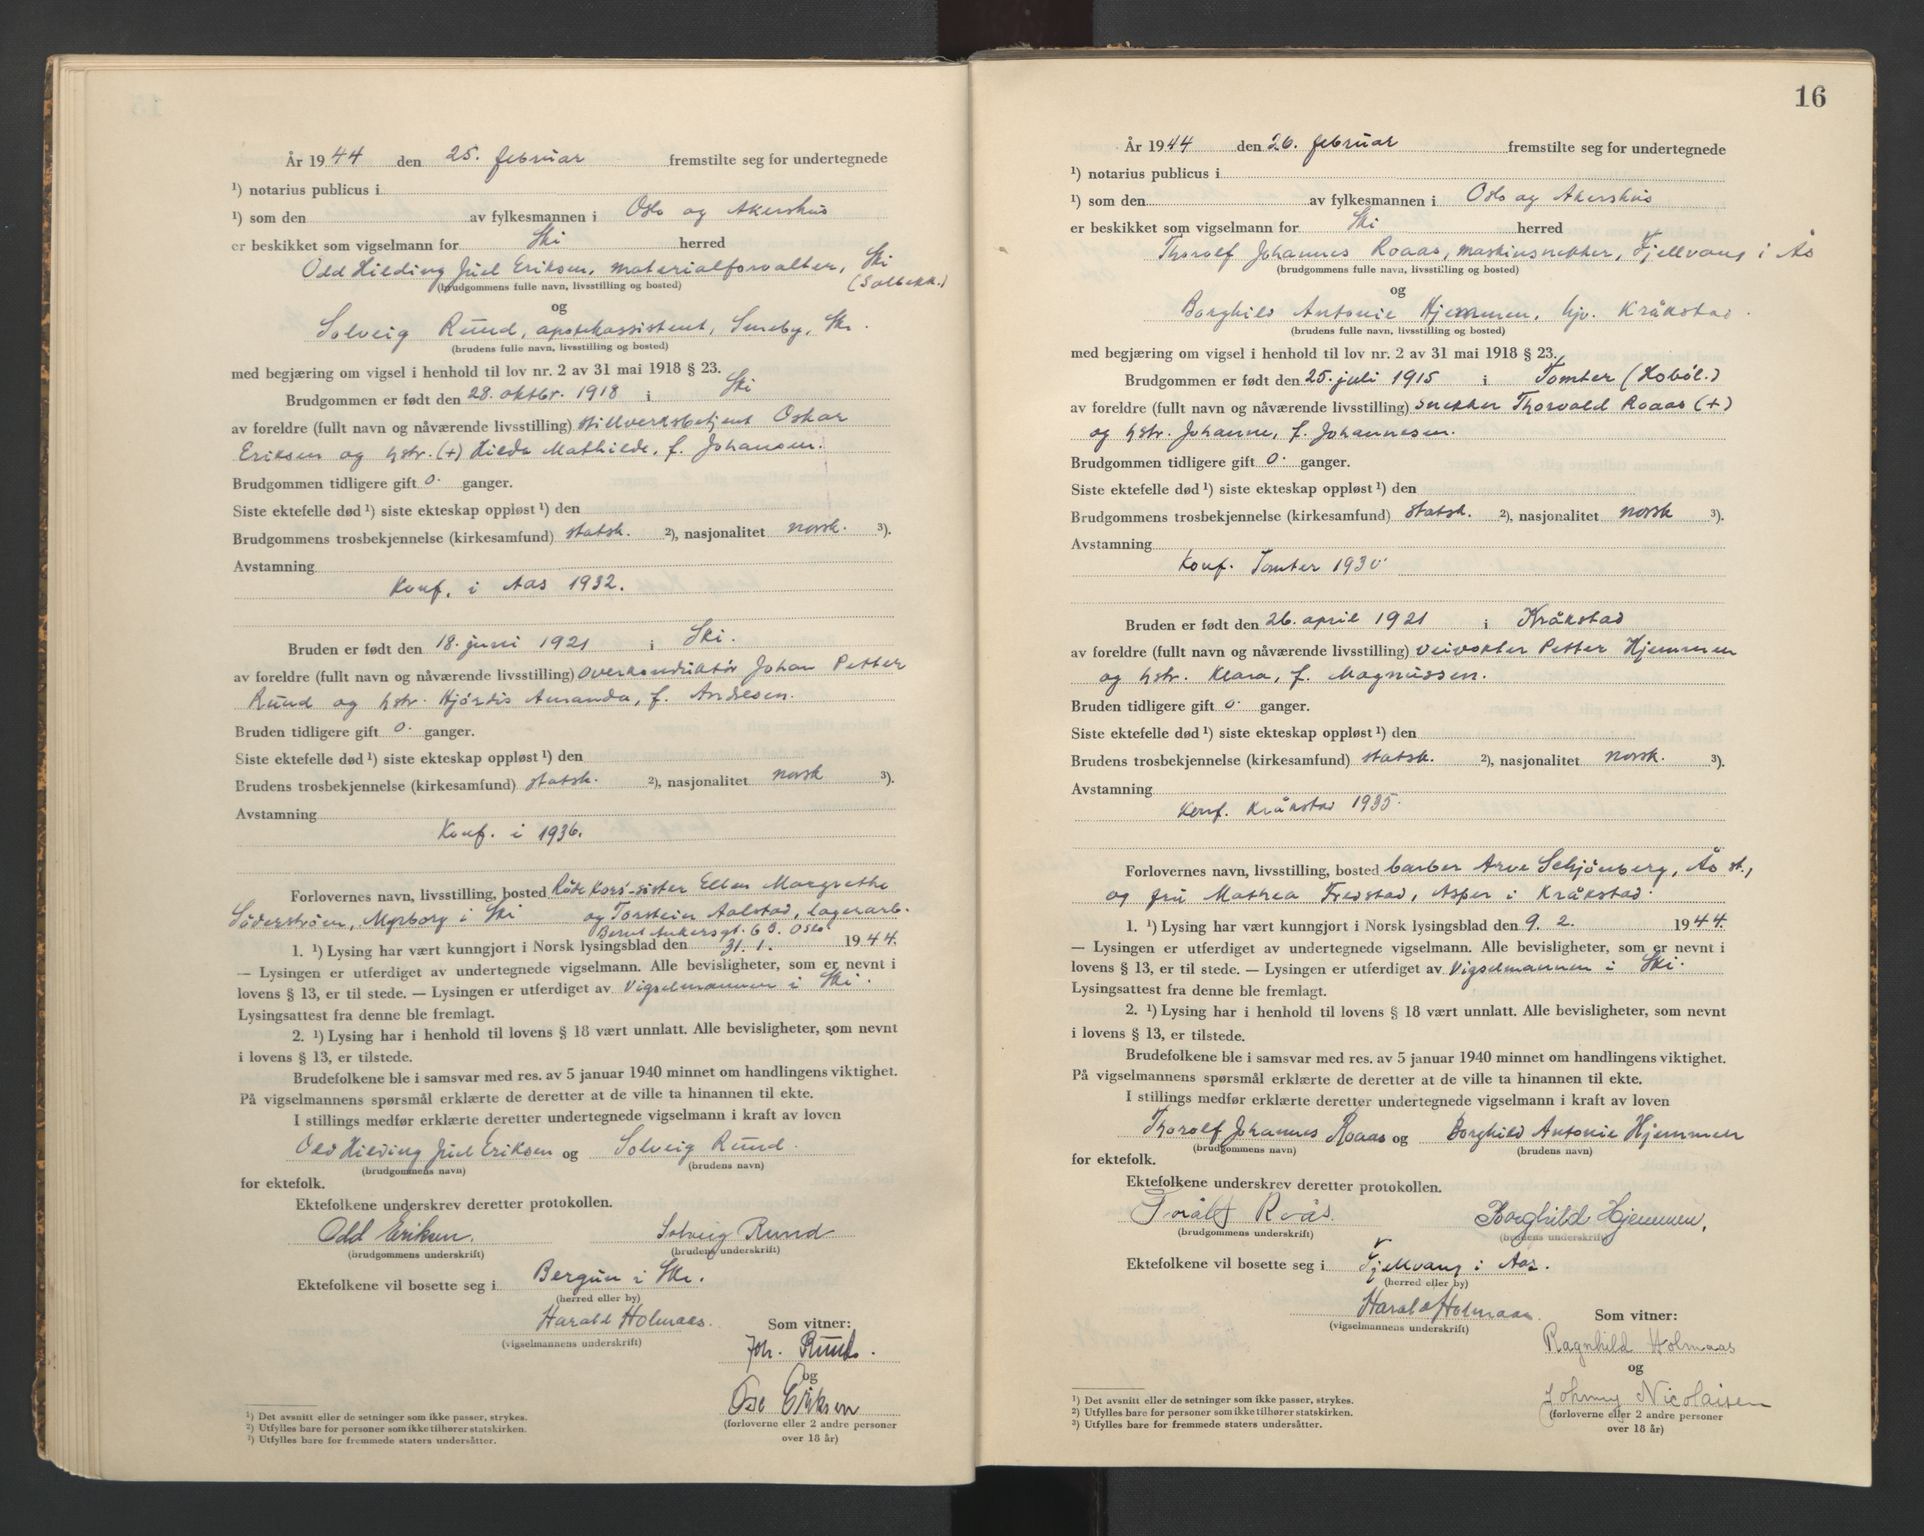 År 1944 den 25. februar fremstilte seg for undertegnede
¹) notarius publicus i
¹) som den av fylkesmannen i Oslo og Akershus
er beskikket som vigselmann for Ski herred
Odd Hilding Juel Eriksen, materialforvalter, Ski
(brudgommens fulle navn, livsstilling og bosted) (Solbekk.)
og
Solveig Ruud, apotekassistent, Smeby, Ski.
(brudens fulle navn, livsstilling og bosted)
med begjæring om vigsel i henhold til lov nr. 2 av 31 mai 1918 § 23.
Brudgommen er født den 28. oktbr. 1918 i Ski
av foreldre (fullt navn og nåværende livsstilling) stillverksbetjent Oskar
Eriksen og hstr. (+) Hilda Mathilde, f. Johansen.
Brudgommen tidligere gift 0. ganger.
Siste ektefelle død ¹) siste ekteskap oppløst ¹) den
Brudgommens trosbekjennelse (kirkesamfund) statsk. ²), nasjonalitet norsk. ³).
Avstamning
Konf. i Aas 1932.
Bruden er født den 18. juni 1921 i Ski.
av foreldre (fullt navn og nåværende livsstilling) overkonduktør Johan Petter
Ruud og hstr. Hjørdis Amanda, f. Andresen.
Bruden tidligere gift 0. ganger.
Siste ektefelle død ¹) siste ekteskap oppløst ¹) den
Brudens trosbekjennelse (kirkesamfund) statsk. ²), nasjonalitet norsk ³).
Avstamning
Konf. i 1936.
Forlovernes navn, livsstilling, bosted Røde Kors-sister Ellen Margrethe
Söderström, Myrborg i Ski og Torstein Aalstad, lagerarb.
Bernt Ankersgt. 6 B. Oslo
1. ¹) Lysing har vært kunngjort i Norsk lysingsblad den 31. 1. 1944.
— Lysingen er utferdiget av undertegnede vigselmann. Alle bevisligheter, som er nevnt i
lovens § 13, er til stede. — Lysingen er utferdiget av Vigselmannen i Ski.
Lysingsattest fra denne ble fremlagt.
2. ¹) Lysing har i henhold til lovens § 18 vært unnlatt. Alle bevisligheter, som nevnt
i lovens § 13, er tilstede.
Brudefolkene ble i samsvar med res. av 5 januar 1940 minnet om handlingens viktighet.
På vigselmannens spørsmål erklærte de deretter at de ville ta hinannen til ekte.
I stillings medfør erklærte deretter undertegnede vigselmann i kraft av loven
Odd Hilding Juel Eriksen og Solveig Ruud.
(brudgommens navn) (brudens navn)
for ektefolk.
Ektefolkene underskrev deretter protokollen.
Odd Eriksen. Solveig Ruud
(brudgommens underskrift) (brudens underskrift)
Ektefolkene vil bosette seg i Bergun i Ski.
(herred eller by)
Harald Holmaas. Som vitner:
(vigselmannens underskrift)
Joh. Ruud.
og
Eriksen
(forloverne eller 2 andre personer
over 18 år)
¹) Det avsnitt eller de setninger som ikke passer, strykes.
²) Utfylles bare for personer som ikke tilhører statskirken.
³) Utfylles bare for fremmede staters undersåtter.
16
År 1944 den 26. februar fremstilte seg for undertegnede
¹) notarius publicus i
¹) som den av fylkesmannen i Oslo og Akershus
er beskikket som vigselmann for Ski herred
Thorolf Johannes Roaas, maskinsnekker, Fjellvang i Ås
(brudgommens fulle navn, livsstilling og bosted)
og
Borghild Antonie Hjemmen, hjv. Kråkstad.
(brudens fulle navn, livsstilling og bosted)
med begjæring om vigsel i henhold til lov nr. 2 av 31 mai 1918 § 23.
Brudgommen er født den 25. juli 1915 i Tomter (Hobøl.)
av foreldre (fullt navn og nåværende livsstilling) snekker Thorvald Roaas (+)
og hstr. Johanne, f. Johannesen.
Brudgommen tidligere gift 0. ganger.
Siste ektefelle død ¹) siste ekteskap oppløst ¹) den
Brudgommens trosbekjennelse (kirkesamfund) statsk. ²), nasjonalitet norsk ³).
Avstamning
Konf. Tomter 1930.
Bruden er født den 26. april 1921 i Kråkstad
av foreldre (fullt navn og nåværende livsstilling) veivokter Petter Hjemmen
og hstr. Klara, f. Magnussen.
Bruden tidligere gift 0. ganger.
Siste ektefelle død ¹) siste ekteskap oppløst ¹) den
Brudens trosbekjennelse (kirkesamfund) statsk. ²), nasjonalitet norsk. ³).
Avstamning
Konf. Kråkstad 1935.
Forlovernes navn, livsstilling, bosted barber Arve Schjønberg, Ås st.,
og fru Mathea Fredstad, Asper i Kråkstad.
1. ¹) Lysing har vært kunngjort i Norsk lysingsblad den 9. 2. 1944.
— Lysingen er utferdiget av undertegnede vigselmann. Alle bevisligheter, som er nevnt i
lovens § 13, er til stede. — Lysingen er utferdiget av Vigselmannen i Ski.
Lysingsattest fra denne ble fremlagt.
2. ¹) Lysing har i henhold til lovens § 18 vært unnlatt. Alle bevisligheter, som nevnt
i lovens § 13, er tilstede.
Brudefolkene ble i samsvar med res. av 5 januar 1940 minnet om handlingens viktighet.
På vigselmannens spørsmål erklærte de deretter at de ville ta hinannen til ekte.
I stillings medfør erklærte deretter undertegnede vigselmann i kraft av loven
Thorolf Johannes Roaas og Borghild Antonie Hjemmen
(brudgommens navn) (brudens navn)
for ektefolk.
Ektefolkene underskrev deretter protokollen.
Torålf Roås. Borghild Hjemmen.
(brudgommens underskrift) (brudens underskrift)
Ektefolkene vil bosette seg i Fjellvang i Aas.
(herred eller by)
Harald Holmaas. Som vitner:
(vigselmannens underskrift)
Ragnhild Holmaas
og
Johnny Nicolaisen
(forloverne eller 2 andre personer
over 18 år)
¹) Det avsnitt eller de setninger som ikke passer, strykes.
²) Utfylles bare for personer som ikke tilhører statskirken.
³) Utfylles bare for fremmede staters undersåtter.